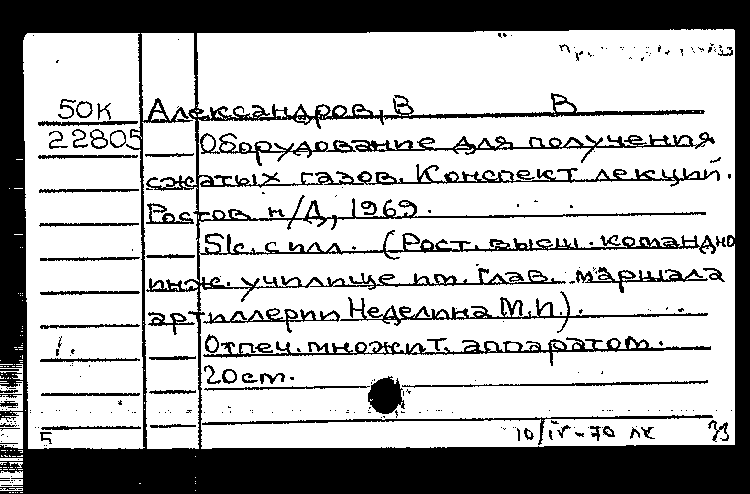 50К Александров, В В
22805 Оборудование для получения
сжатых газов. Конспект лекций.
Ростов н/Д, 1969.
51с. с илл. (Рост. высш. командно
инж. училище им. Глав. маршала
артиллерии Неделина М.И).
1. Отпеч. множит. аппаратом.
20см.
Б 10/IV-70 лк